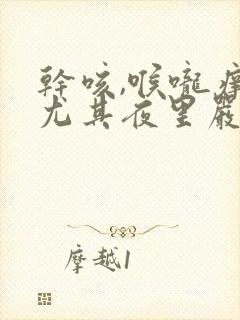 幹咳,喉嚨癢
尤其夜里嚴
摩越1